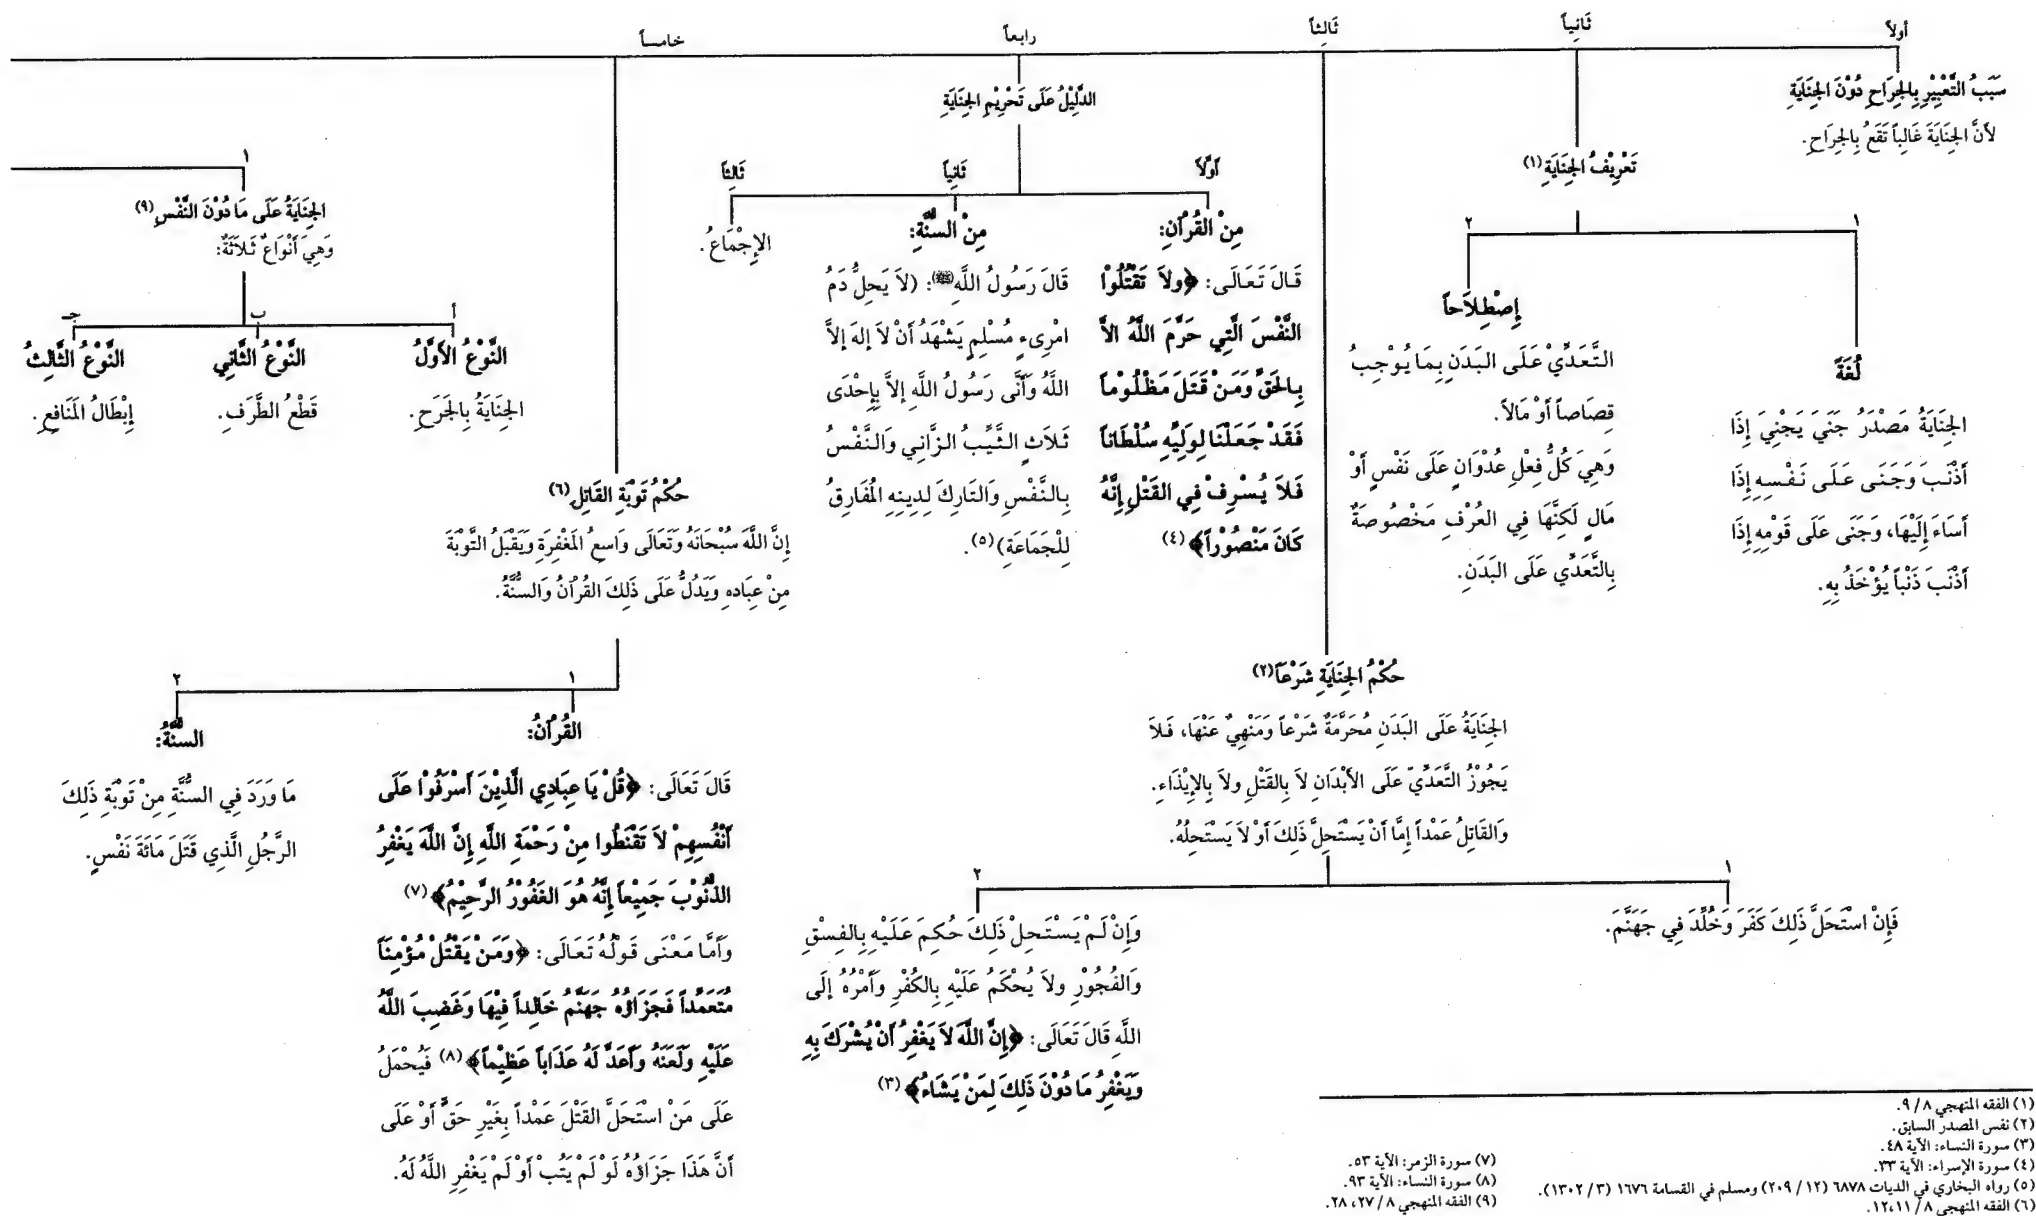 أولاً
سَبَبُ التَّعْبِيْرِ بِالجِرَاحِ دُوْنَ الجِنَايَةِ
لأَنَّ الجِنَايَةَ غَالِباً تَقَعُ بِالجِرَاحِ.
ثَانِياً
تَعْرِيْفُ الجِنَايَةِ (١)
١
لُغَةً
الجِنَايَةُ مَصْدَرُ جَنَىَ يَجْنِيَ إِذَا
أَذْنَبَ وَجَنَى عَلَى نَفْسِهِ إِذَا
أَسَاءَ إِلَيْهَا، وَجَنَى عَلَى قَوْمِهِ إِذَا
أَذْنَبَ ذَنْباً يُؤْخَذُ بِهِ.
٢
إِصْطِلاَحاً
التَّعَدِّيْ عَلَى البَدَنِ بِمَا يُوْجِبُ
قِصَاصاً أَوْ مَالاً.
وَهِيَ كُلُّ فِعْلِ عُدْوَانٍ عَلَى نَفْسٍ أَوْ
مَالٍ لَكِنَّهَا فِي العُرْفِ مَخْصُوصَةٌ
بِالتَّعَدِّي عَلَى البَدَنِ.
ثَالِثاً
حُكْمُ الجِنَايَةِ شَرْعَاً (٢)
الجِنَايَةُ عَلَى البَدَنِ مُحَرَّمَةٌ شَرْعاً وَمَنْهِيٌ عَنْهَا، فَلاَ
يَجُوْزُ التَّعَدِّيّ عَلَى الأَبْدَانِ لاَ بِالقَتْلِ ولاَ بِالإِيْذَاءِ.
وَالقَاتِلُ عَمْداً إِمَّا أَنْ يَسْتَحِلَّ ذَلِكَ أَوْ لاَ يَسْتَحِلُهُ.
١
فَإِنْ اسْتَحَلَّ ذَلِكَ كَفَرَ وَخُلِّدَ فِي جَهَنَّمَ.
٢
وَإِنْ لَمْ يَسْتَحِلْ ذَلِكَ حُكِمَ عَلَيْهِ بِالفِسْقِ
وَالفُجُوْرِ ولاَ يُحْكَمُ عَلَيْهِ بِالكُفْرِ وَأَمْرُهُ إِلَى
اللَّهِ قَالَ تَعَالَى: ﴿إِنَّ اللَّهَ لاَ يَغْفِرُ أَنْ يُشْرَكَ بِهِ
وَيَغْفِرُ مَا دُوْنَ ذَلِكَ لِمَنْ يَشَاءُ﴾ (٣)
رابعاً
الدَّلِيْلُ عَلَى تَحْرِيْمِ الجِنَايَةِ
أَوَّلاً
مِنْ القُرْآنِ:
قَالَ تَعَالَى: ﴿ولاَ تَقْتُلُوْا
النَّفْسَ الَّتِي حَرَّمَ اللَّهُ الاَّ
بِالحَقِّ وَمَنْ قَتَلَ مَظْلُوْماً
فَقَدْ جَعَلْنَا لِوَلِيِّهِ سُلْطَاناً
فَلاَ يُسْرِفْ فِي القَتْلِ إِنَّهُ
كَانَ مَنْصُوْراً﴾ (٤)
ثَانِياً
مِنْ السُنَّةِ:
قَالَ رَسُولُ اللَّهِ ﷺ: (لاَ يَحِلُّ دَمُ
امْرِىءٍ مُسْلِمٍ يَشْهَدُ أَنْ لاَ إِلهَ إِلاَّ
اللَّهُ وَأَنَّى رَسُولُ اللَّهِ إِلاَّ بِإِحْدَى
ثَلاَثٍ الثَّيِّبُ الزَّانِي وَالنَّفْسُ
بِالنَّفْسِ وَالتَارِكَ لِدِينِهِ المُفَارِقُ
لِلْجَمَاعَةِ) (٥).
ثَالِثاً
الإِجْمَاعُ.
خامساً
حُكْمُ تَوْبَةِ القَاتِلِ (٦)
إِنَّ اللَّهَ سُبْحَانَهُ وَتَعَالَى وَاسِعِ المَغْفِرَةِ وَيَقْبَلُ التَّوْبَةَ
مِنْ عِبَادِهِ وَيَدُلُّ عَلَى ذَلِكَ القُرْآنُ وَالسُّنَّةُ.
١
القُرْآنُ:
قَالَ تَعَالَى: ﴿قُلْ يَا عِبَادِي الَّذِيْنَ أَسْرَفُوْا عَلَى
أَنْفُسِهِمْ لاَ تَقْنَطُوا مِنْ رَحْمَةِ اللَّهِ إِنَّ اللَّهَ يَغْفِرُ
الذُّنُوْبَ جَمِيْعاً إِنَّهُ هُوَ الغَفُوْرُ الرَّحِيْمُ﴾ (٧)
وَأَمَّا مَعْنَى قَوْلُهُ تَعَالَى: ﴿وَمَنْ يَقْتُلْ مُؤْمِنَاً
مُتَعَمِّداً فَجَزَاؤُهُ جَهَنَّمُ خَالِداً فِيْهَا وَغَضِبَ اللَّهُ
عَلَيْهِ وَلَعَنَهُ وَأَعَدَّ لَهُ عَذَاباً عَظِيْماً﴾ (٨) فَيُحْمَلُ
عَلَى مَنْ اسْتَحَلَّ القَتْلَ عَمْداً بِغَيْرِ حَقٍّ أَوْ عَلَى
أَنَّ هَذَا جَزَاؤُهُ لَوْ لَمْ يَتُبْ أَوْ لَمْ يَغْفِرِ اللَّهُ لَهُ.
٢
السُنَّةُ:
مَا وَرَدَ فِي السُنَّةِ مِنْ تَوْبَةِ ذَلِكَ
الرَّجُلِ الَّذِي قَتَلَ مَائَةَ نَفْسٍ.
١
الجِنَايَةُ عَلَى مَا دُوْنَ النَّفْسِ (٩)
وَهِيَ أَنْوَاعٌ ثَلاَثَةٌ:
أ
النَّوْعُ الأَوَّلُ
الجِنَايَةُ بِالجَرَحِ.
ب
النَّوْعُ الثَّانِي
قَطْعُ الطَّرَفِ.
جـ
النَّوْعُ الثَّالِثُ
إِبْطَالُ المَنَافِعِ.
(١) الفقه المنهجي ٨ / ٩.
(٢) نفس المصدر السابق.
(٣) سورة النساء: الآية ٤٨.
(٤) سورة الإسراء: الآية ٣٣.
(٥) رواه البخاري في الديات ٦٨٧٨ (١٢ / ٢٠٩) ومسلم في القسامة ١٦٧٦ (٣ / ١٣٠٢).
(٦) الفقه المنهجي ٨ / ١١،١٢.
(٧) سورة الزمر: الآية ٥٣.
(٨) سورة النساء: الآية ٩٣.
(٩) الفقه المنهجي ٨ / ٢٧، ٢٨.